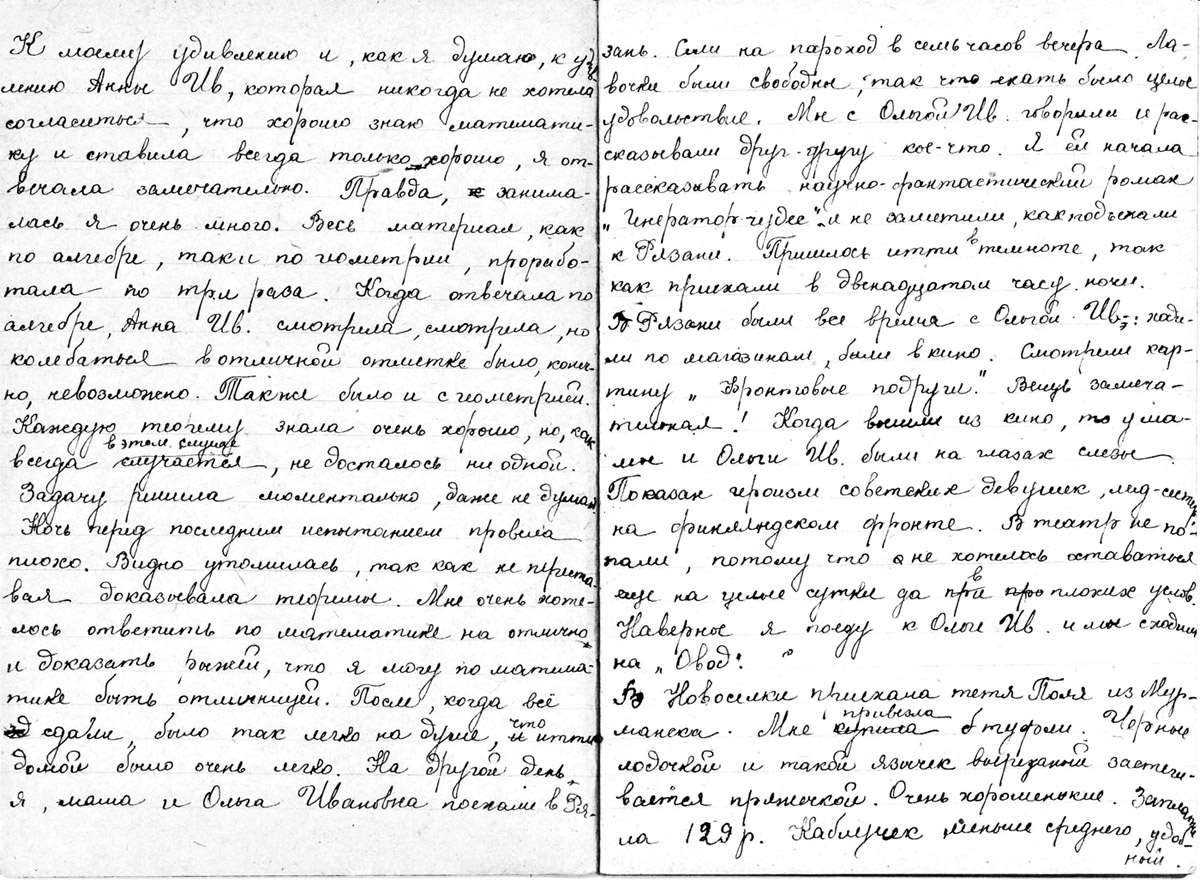 К моему удивлению и, как я думаю, к удив
лению Анны Ив, которая никогда не хотела
согласиться, что хорошо знаю математи-
ку и ставила всегда только хорошо, я от-
вечала замечательно. Правда, занима-
лась я очень много. Весь материал, как
по алгебре, так и по геометрии, прорабо-
тала по три раза. Когда отвечала по
алгебре, Анна Ив. смотрела, смотрела, но
колебаться в отличной отметке было, конеч-
но, невозможно. Также было и с геометрией.
Каждую теорему знала очень хорошо, но, как
всегда в этом случае случается, не досталось ни одной.
Задачу решила моментально, даже не думая.
Ночь перед последним испытанием провела
плохо. Видно утомилась, так как не переста
вая доказывала теоремы. Мне очень хоте-
лось ответить по математике на отлично
и доказать рыжей, что я могу по матема-
тике быть отличницей. После, когда всё
сдали, было так легко на душе, что и итти
домой было очень легко. На другой день
я, мама и Ольга Ивановна поехали в Ря-
зань. Сели на пароход в семь часов вечера. Ла-
вочки были свободны, так что ехать было целое
удовольствие. Мы с Ольгой Ив. говорили и рас-
сказывали друг-другу кое-что. Я ей начала
рассказывать научно-фантастический роман
„Генератор чудес" и не заметили, как подъехали
к Рязани. Пришлось итти в темноте, так
как приехали в двенадцатом часу ночи.
В Рязани были все время с Ольгой Ив.: ходи-
ли по магазинам, были в кино. Смотрели кар-
тину „Фронтовые подруги." Вещь замеча-
тельная! Когда вышли из кино, то у ма-
мы и Ольги Ив. были на глазах слезы.
Показан героизм советских девушек, мед-сестер
на финляндском фронте. В театр не по-
пали, потому что не хотелось оставаться
еще на целые сутки да при в плохих услов.
Наверное я поеду к Ольге Ив. и мы сходим
на „Овод".
В Новоселки приехала тетя Поля из Мур-
манска. Мне купила привезла туфли. Черные
лодочкой и такой язычек вырезаной застеги-
вается пряжечкой. Очень хорошенькие. Заплати
ла 129 р. Каблучек меньше среднего, удоб-
ный.